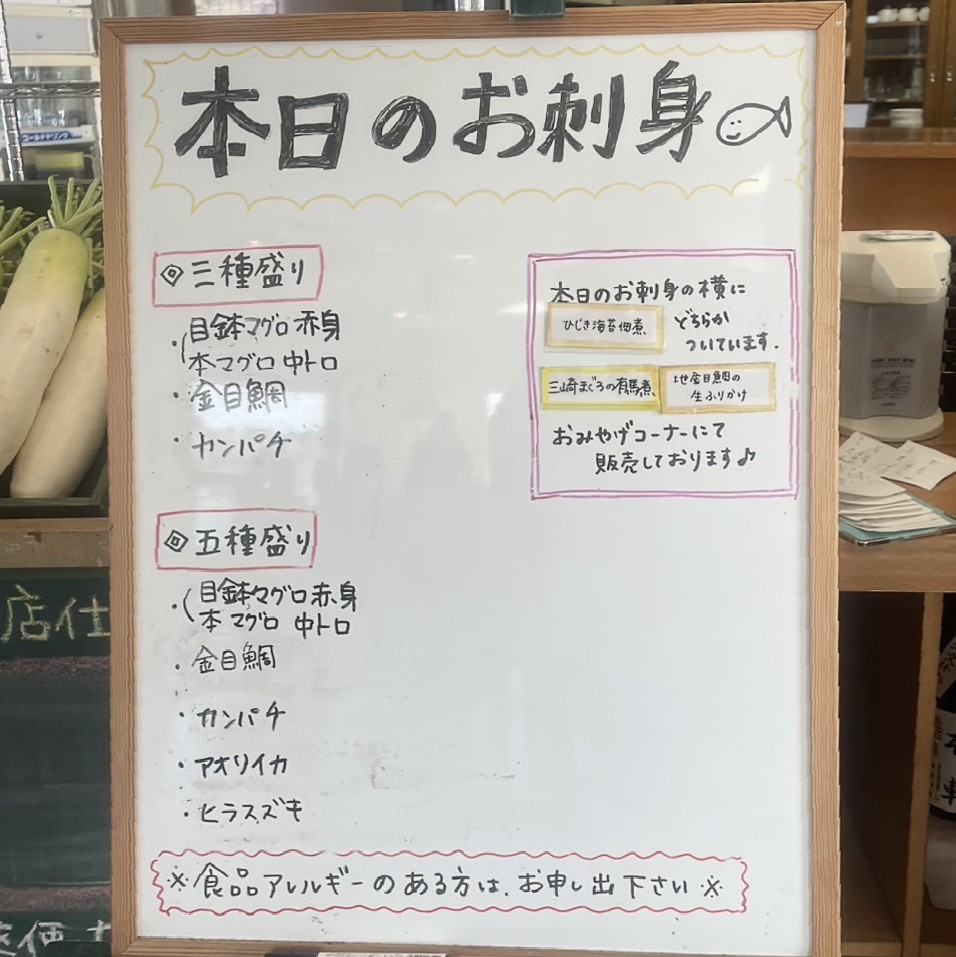 本日のお刺身
◎三種盛り
・(目鉢マグロ赤身
本マグロ 中トロ
・金目鯛
・カンパチ
◎五種盛り
・(目鉢マグロ赤身
本マグロ 中トロ
・金目鯛
・カンパチ
・アオリイカ
・ヒラスズキ
本日のお刺身の横に
ひじき海苔佃煮 どちらか
ついています.
三崎まぐろの有馬煮 地金目鯛の
生ふりかけ
おみやげコーナーにて
販売しております♪
※食品アレルギーのある方は、お申し出下さい※
店仕